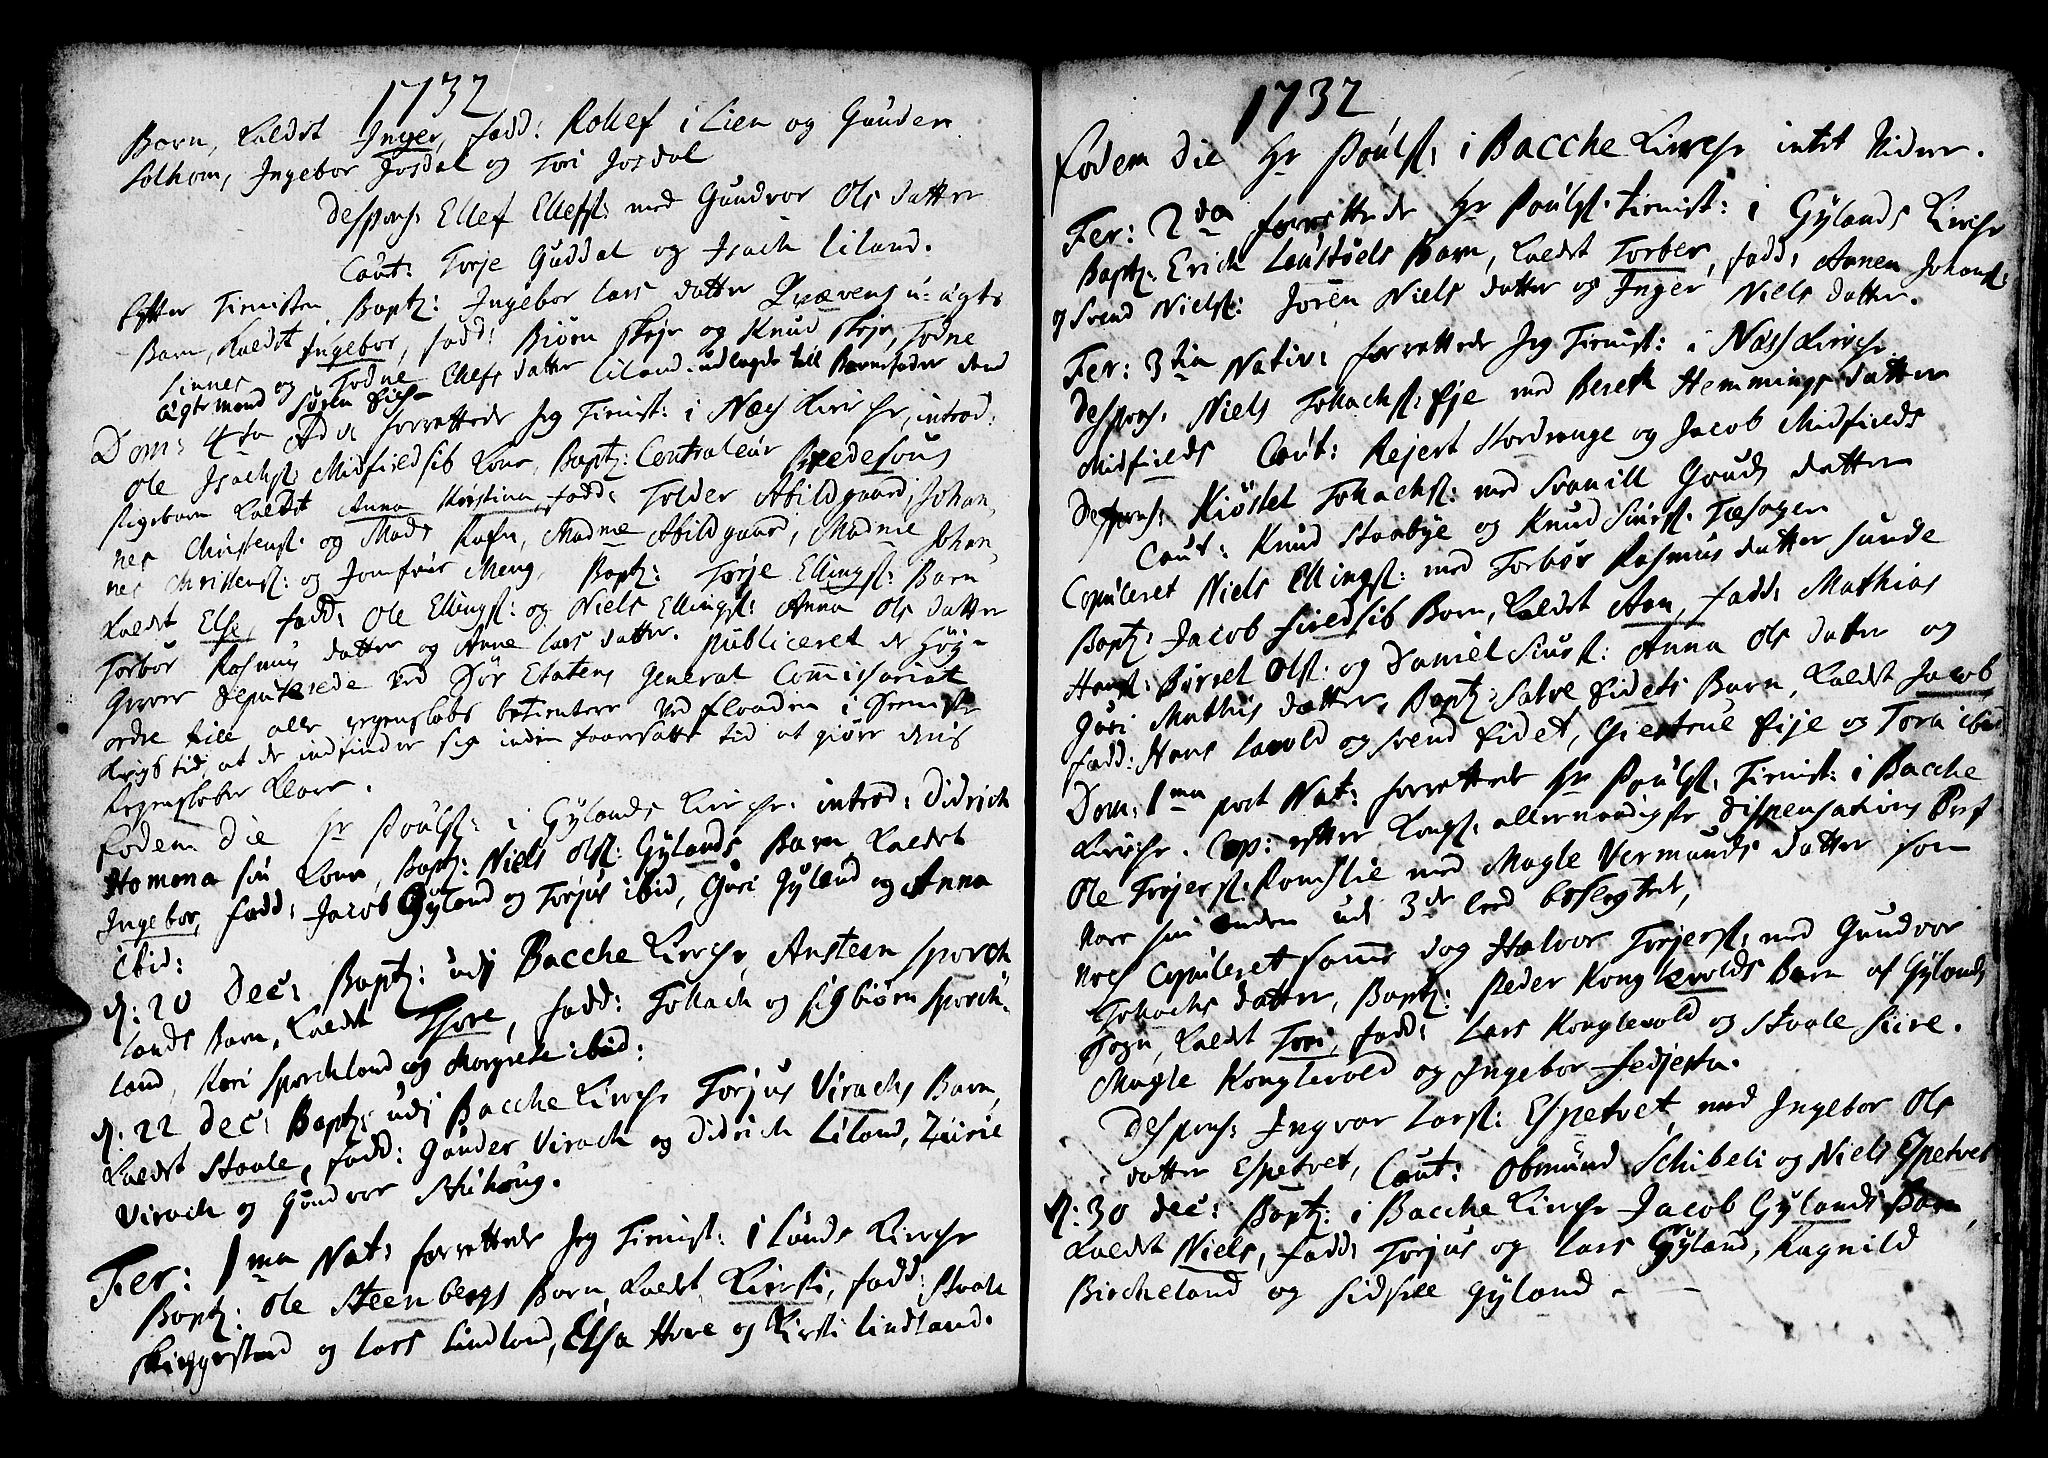 1732
Barn, kaldet Inger, fadd: Rollef i Lien og Gunder
Solhom, Ingebor Josdal og Tori Josdal
Despons: Ellef Ellefs: med Gundvor Ols datter
Caut: Torje Guddal og Isach Liland.
Efter Tienisten Bapt: Ingebor Lars datter Qvævens u-ægte
Barn, kaldet Ingebor, fadd: Biørn Skeje og Knud Skeje, Todne
Sinnes og Todne Ellefs datter Liland. udlagde till Barnefader
ægte mand Søren
Dom: 4ta Adv: forrettede Jeg Tienist: i Næs Kirche, introd:
Ole Isachs: Midfieldsib Kone, Bapt: Contraleur Bredesons
Pigebarn kaldet Anna Kirstina, fadd: Tolder Abildgaard, Johan
nes Christens: og Mads Rafn, Madme Abildgaard, Madme Johan
nes Christens: og Jomfrue Meng. Bapt: Torje Ellings: Barn
kaldet Else, fadd: Ole Ellings: og Niels Ellings: Anna Ols datter
Torbor Rasmus datter og Anne Lars datter. publiceret de Høy-
Deputerede ved Søe Etatens General Commissariat
ordre till alle betientere ved Flaaden i
Krigs tid, at de indfinder sig inden foresatte tid at giøre deris
Regenskaber klare.
Eodem Die Hr Pouls: i Gylands Kirche: introd: Didrich
Homena sin Kone, Bapt: Niels Ols: Gylands Barn kaldet
Ingebor, fadd: Jacob Gyland og Torjus ibid, Guri Gyland og Anna
ibid:
d: 20 Dec: Bapt: udj Bacche Kirche, Ansteen Sporch
lands Barn, kaldet Thore, fadd: Tollach og Sigbiørn Sporch-
land, Kari Sporchland og Margrete ibid:
d: 22 Dec: Bapt: udj Bacche Kirche Torjus Virachs Barn,
kaldet Staale, fadd: Gunder Virach og Didrich Liland, Zirie
Virach og Gundvor Stuhoug.
Fer: 1ma Nat: forrettede Jeg Tienist: i Lunds Kirche
Bapt: Ole Steenbergs Barn kaldet Kirsti, fadd: Staale
Skieggestad og Lars Lindland, Elsa Hove og Kirsti Lindland.
1732
Eodem Die Hr Pouls: i Bacche Kirche intet videre.
Fer: 2da forrettede Hr Pouls: Tienist: i Gylands Kirche
Bapt: Erich Loustøels Barn, kaldet Torber, fadd: Aanen Johans:
og Svend Niels: Joren Niels datter og Inger Niels datter.
Fer: 3tia Nativ: forrettede Jeg Tienist: i Næs Kirche
Despons: Niels Tollachs: Eje med Berete Hemmings datter
Midfields Caut: Rejert Hordvauge og Jacob Midfields
Despons: Kiøstel Tollachs: med Svanill Guuds datter
Caut: Knud Staabye og Knud Siurs:
Copuleret Niels Ellings: med Torbor Rasmus datter Sunde
Bapt: Jacob Fieldsib Barn, kaldet Aan, fadd: Mathias
Hans: Børrel Ols: og Daniel Siurs: Anna Ols datter og
Guri Mathis datter, Bapt: Salve Eidets Barn, kaldet Jacob
fadd: Hans Lavold og Svend Eidet, Giertrue Eije og Tora ibid
Dom: 1ma post Nat: forrettede Hr Pouls: Tienist: i Bacche
Kirche. Cop: efter Kongl: allernaadigste Dispensations Bref
Ole Trojers: Romslie med Magle Vermunds datter som
vare hin anden udj 3de leed beslegtet,
Noch Copuleret samme dag Halvor Trojers: med Gundvor
Tollachs datter, Bapt: Peder Konglevolds Barn af Gylands
Sogn, kaldet Tori, fadd: Lars Konglevold og Staale Siire.
Magle Konglevold og Ingebor Fedjesta.
Despons: Ingvar Lars: Espetvet, med Ingebor Ols
datter Espetvet, Caut: Obmund Schibeli og Niels Espetvet
d: 30 Dec: Bapt: i Bacche Kirche Jacob Gylands Barn,
kaldet Niels, fadd: Torjus og Lars Gyland, Ragnild
Bircheland og Sidsele Gyland.